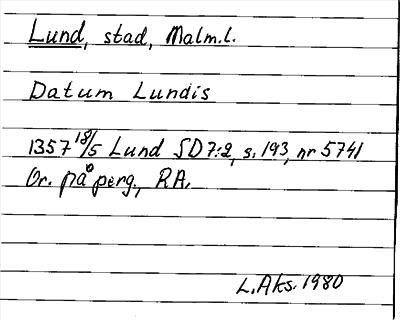 Lund, stad, Malm.l.
Datum Lundis
1357 18/5 Lund SD 7:2, s. 193, nr 5741
Or. på perg., RA.
L.Aks. 1980